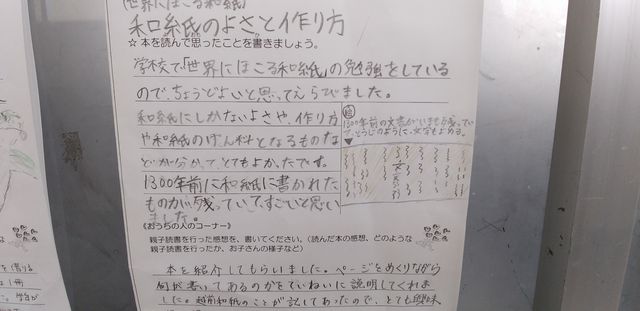 (世界にほこる和紙)
和紙のよさと作り方
☆ 本を読んで思ったことを書きましょう。
学校で「世界にほこる和紙」の勉強をしている
ので、ちょうどよいと思ってえらびました。
和紙にしかないよさや、作り方
や和紙のげん料となるものな
どが分かって、とてもよかったです。
1300年前に和紙に書かれた
ものが残っていて、すごいと思い
ました。
絵
1300年前の文書がいまも残ってい
て、とうじのように、文字もよめる。
《おうちの人のコーナー》
親子読書を行った感想を、書いてください。(読んだ本の感想、どのような
親子読書を行ったか、お子さんの様子など)
本を紹介してもらいました。ページをめくりながら
何が書いてあるのかをていねいに説明してくれま
した。越前和紙のことが記してあったので、とても興味